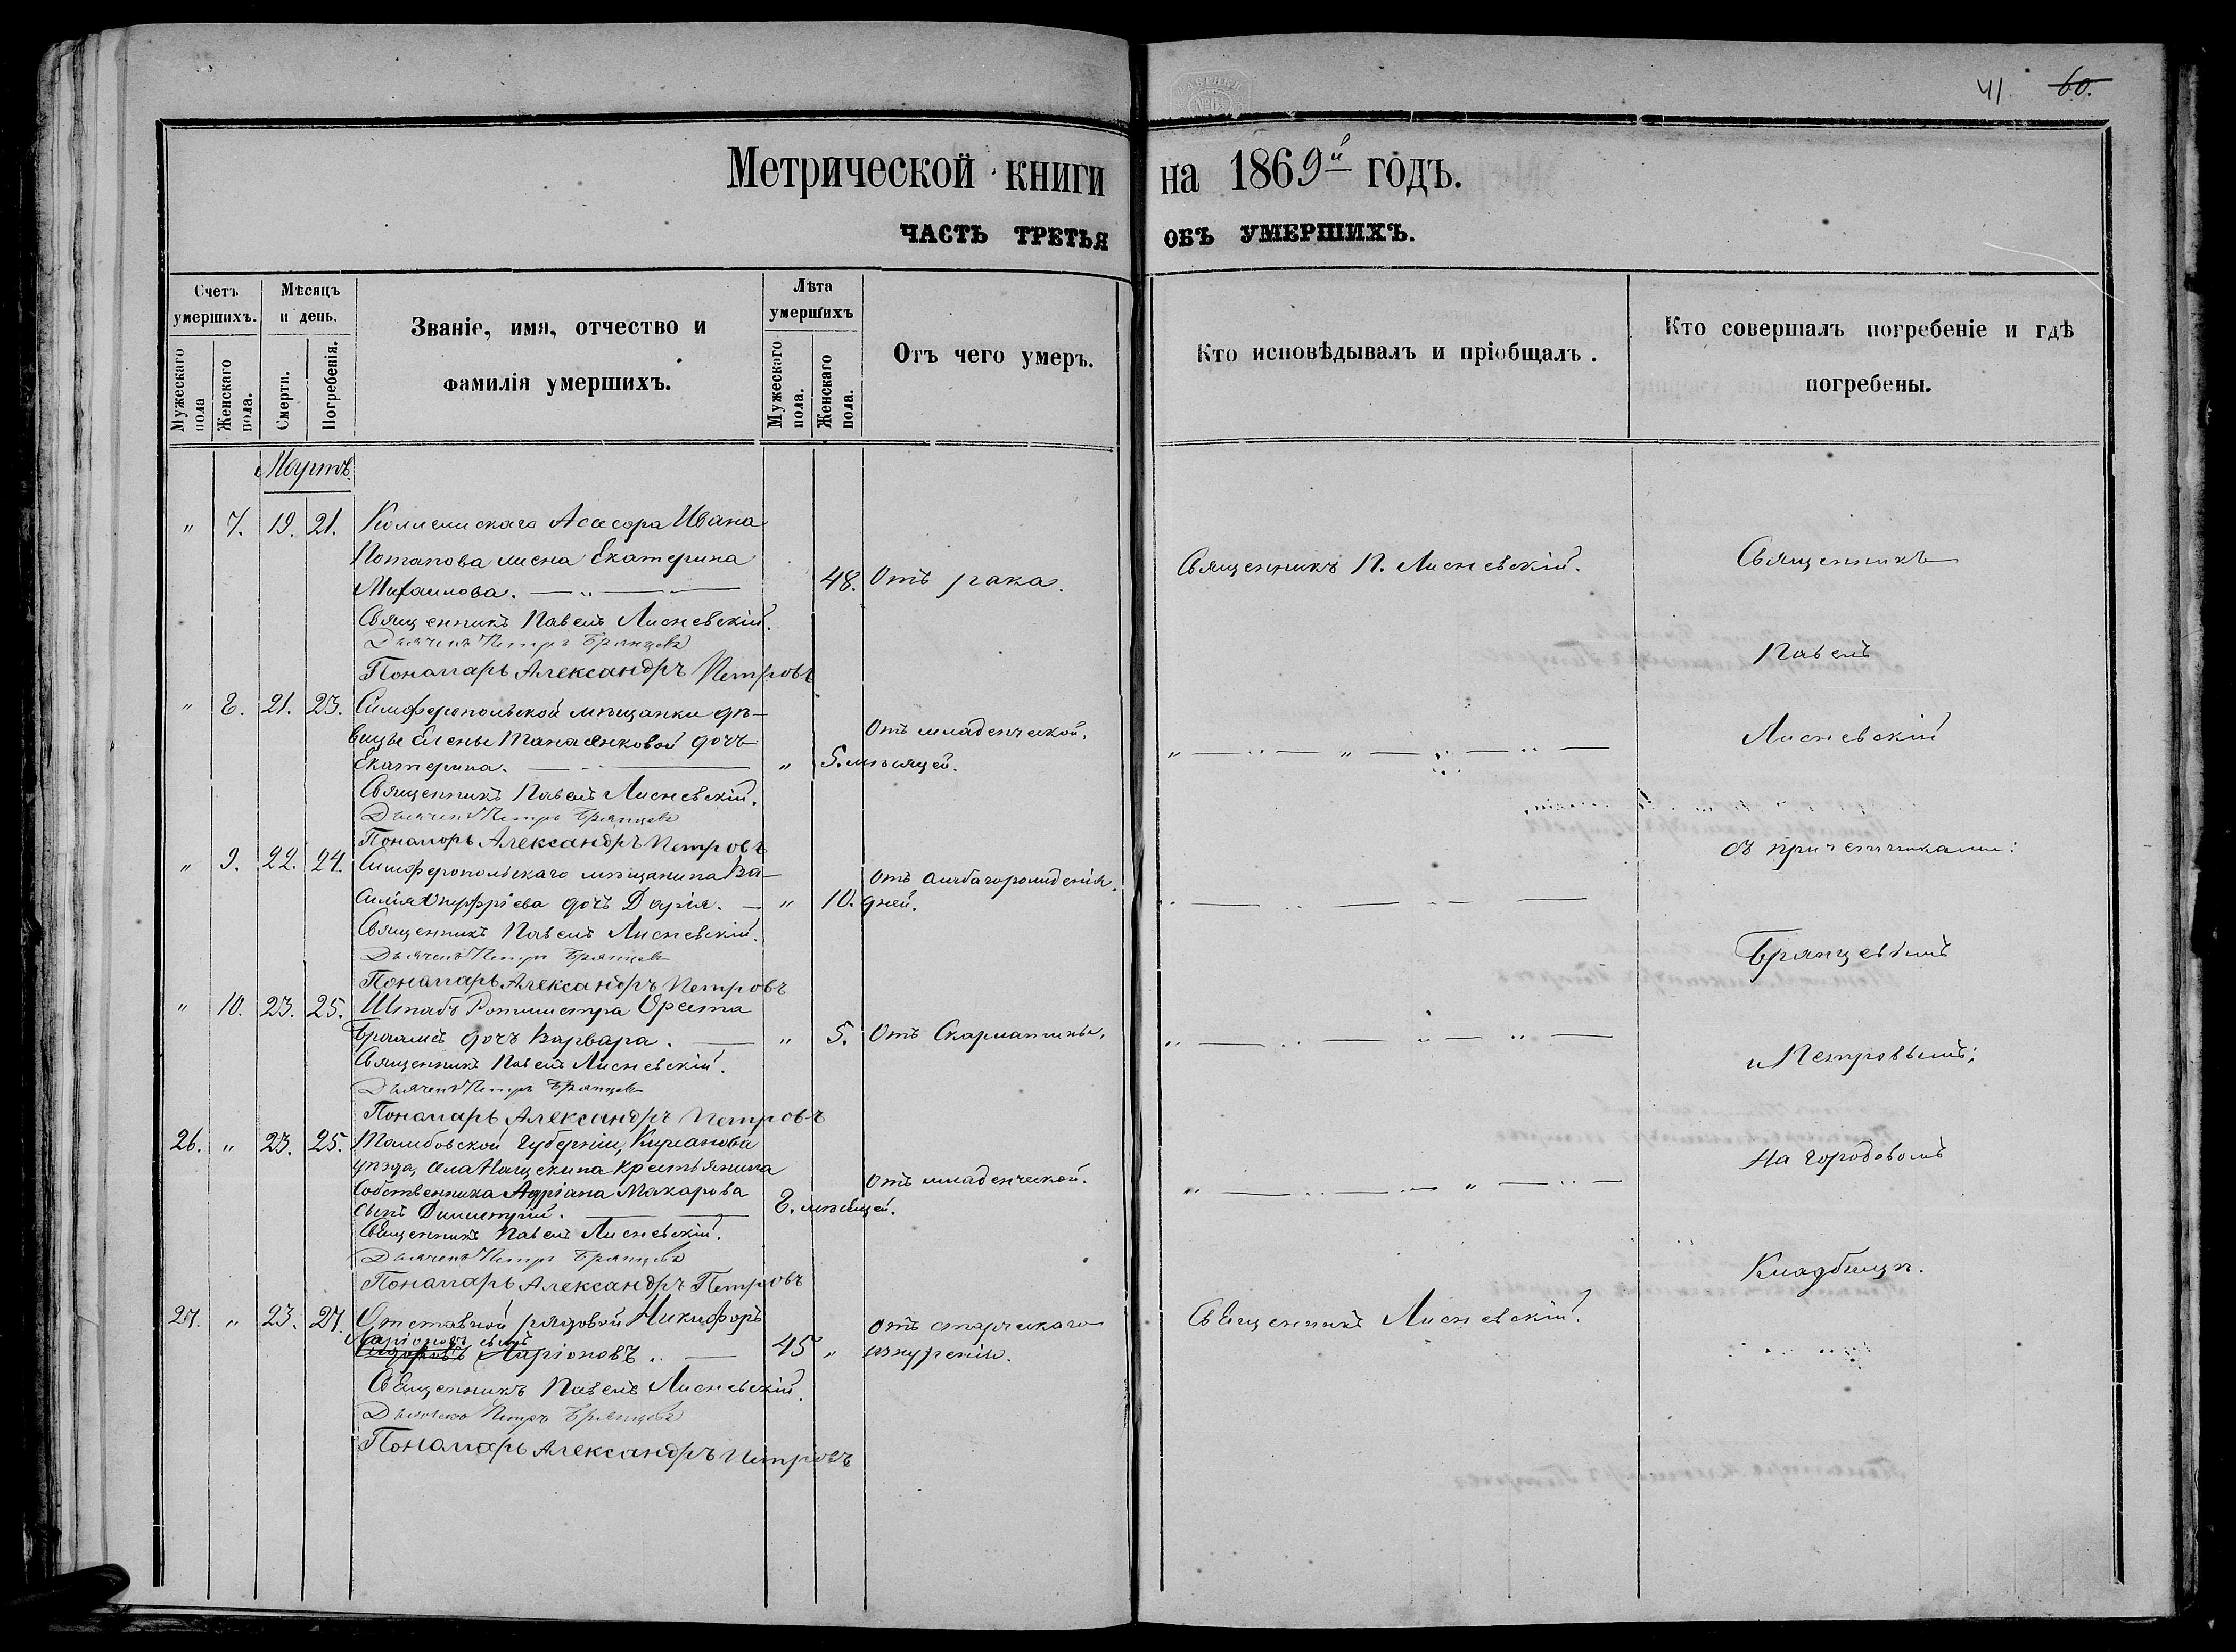 41 60.
Метрической книги на 1869й годъ.
ЧАСТЬ ТРЕТЬЯ ОБЪ УМЕРШИХЪ.
Счетъ умершихъ.
Мѣсяцъ и день.
Званіе, имя, отчество и фамилія умершихъ.
Лѣта умершихъ
Отъ чего умеръ.
Кто исповѣдывалъ и пріобщалъ.
Кто совершалъ погребеніе и гдѣ погребены.
Мужескаго пола
Женскаго пола.
Смерти.
Погребенія.
Мужескаго пола.
Женскаго пола.
Мартъ.
" 7. 19. 21. Коллежскаго Асасора Ивана
Потапова жена Екатерина
Михаилова. 48. Отъ рака. Священникъ П. Лисневскій. Священникъ
Священникъ Павелъ Лисневскій.
Дьячекъ Петръ Брянцевъ
Пономарь Александръ Петровъ
Павелъ
" 8. 21. 23. Симферопольской мѣщанки дѣ-
вицы Елены Танасенковой дочь
Екатерина. " 5. мѣсяцей. Отъ младенческой.
Лисневскій
Священникъ Павелъ Лисневскій.
Дьячекъ Петръ Брянцевъ
Пономарь Александръ Петровъ
съ причетниками:
" 9. 22. 24. Симферопольскаго мѣщанина Ва-
силія дочь Дарія. " 10. дней. Отъ
Священникъ Павелъ Лисневскій.
Дьячекъ Петръ Брянцевъ
Пономарь Александръ Петровъ
Брянцевымъ
" 10. 23. 25. Штабъ Ротмистра Ореста
дочь Варвара. " 5. Отъ Скарлатины.
Священникъ Павелъ Лисневскій.
Дьячекъ Петръ Брянцевъ
Пономарь Александръ Петровъ
и Петровымъ;
26. " 23. 25. Тамбовской Губерніи, Кирсанова
уѣзда, села Нащекина крестьянина
Собственника Адріана Макарова
сынъ Димитрій. 8. мѣсяцей. Отъ младенческой.
На городовомъ
Священникъ Павелъ Лисневскій.
Дьячекъ Петръ Брянцевъ
Пономарь Александръ Петровъ
Кладбищѣ.
27. " 23. 27. Отставной рядовой Никифоръ
Ларіоновъ сынъ
Ларіоновъ. 45 " Отъ старческаго
изнуренія. Священникъ Лисневскій.
Священникъ Павелъ Лисневскій.
Дьячекъ Петръ Брянцевъ
Пономарь Александръ Петровъ